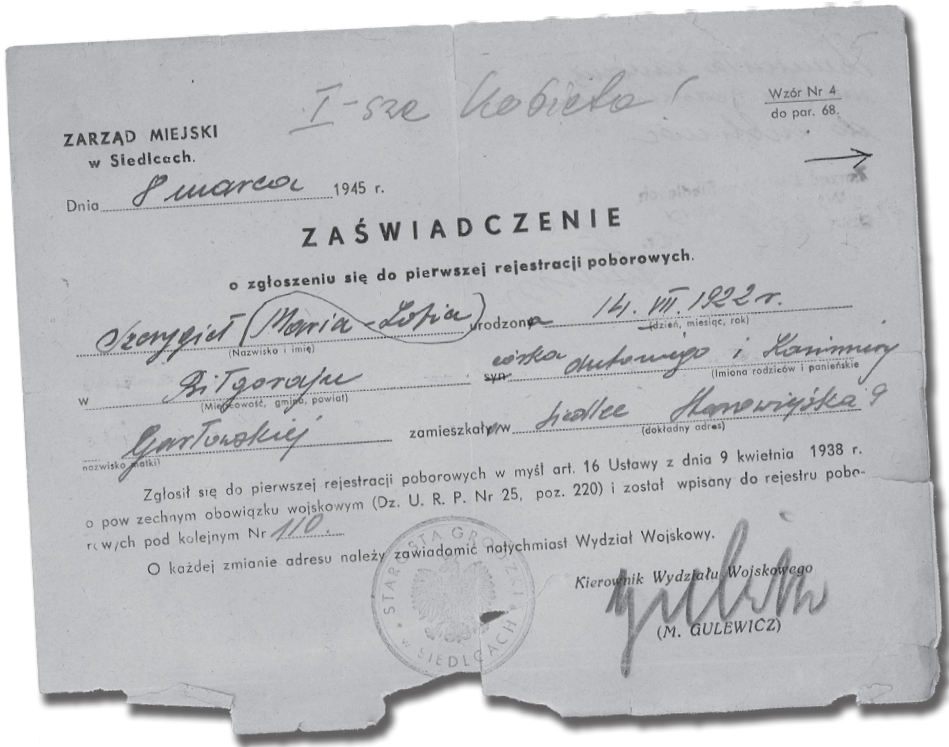 I-sza Kobieta!
Wzór Nr 4
do par. 68.
ZARZĄD MIEJSKI
w Siedlcach.
Dnia 8 marca 1945 r.
ZAŚWIADCZENIE
o zgłoszeniu się do pierwszej rejestracji poborowych.
Szczygieł (Maria-Zofia) urodzona 14. VII. 1922 r.
(Nazwisko i imię) (dzień, miesiąc, rok)
w Biłgoraju syn córka Antoniego i Kazimiery
(Miejscowość, gmina, powiat) (Imiona rodziców i panieńskie
Garłowskiej zamieszkały w Siedlce 9
nazwisko matki) (dokładny adres)
Zgłosił się do pierwszej rejestracji poborowych w myśl art. 16 Ustawy z dnia 9 kwietnia 1938 r.
o pow zechnym obowiązku wojskowym (Dz. U. R. P. Nr 25, poz. 220) i został wpisany do rejestru pobo-
rowych pod kolejnym Nr 110.
O każdej zmianie adresu należy zawiadomić natychmiast Wydział Wojskowy.
STAROSTA GRODZKI
w SIEDLCACH
Kierownik Wydziału Wojskowego
(M. GULEWICZ)